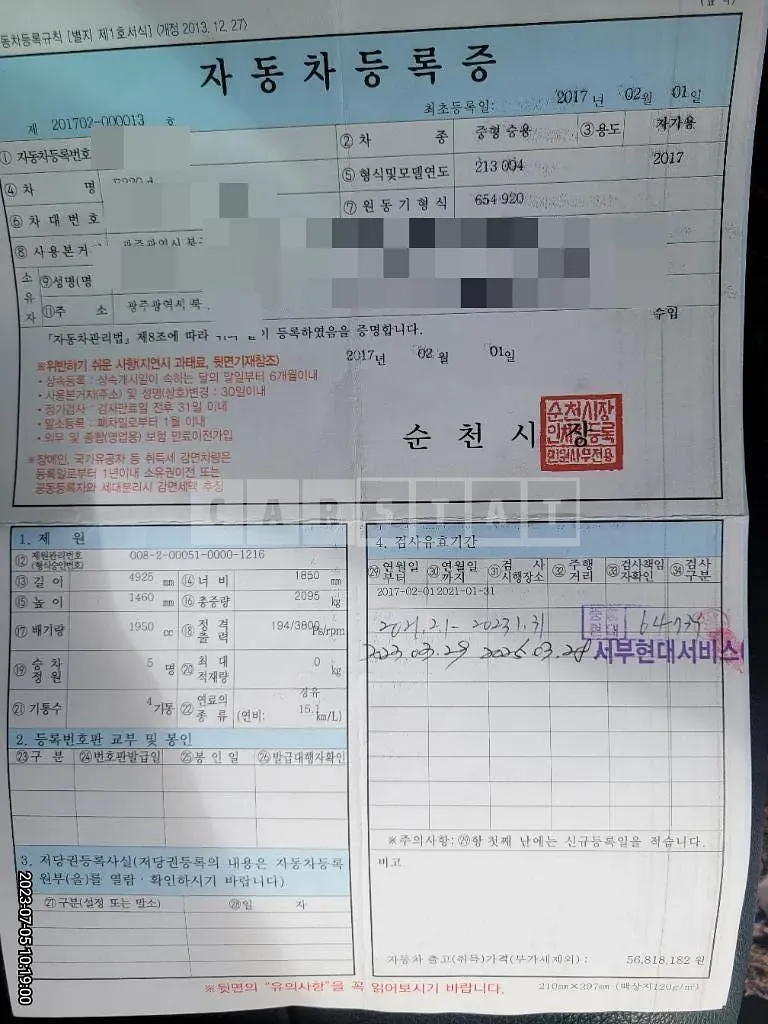 동차등록규칙 [별지 제1호서식] <개정 2013. 12. 27>
자동차등록증
최초등록일: 2017년 02월 01일
제 201702-000013 호
① 자동차등록번호 ② 차 종 중형 승용 ③용도 자가용
④ 차 명 ⑤ 형식및모델연도 213 004 2017
⑥ 차 대 번 호 ⑦ 원 동 기 형 식 654 920
⑧ 사용본거 광주광역시 북
소유자 ⑨성명(명
⑪주 소 광주광역시 북
수입
「자동차관리법」 제8조에 따라 이 등록하였음을 증명합니다.
2017년 02월 01일
※위반하기 쉬운 사항(지연시 과태료, 뒷면기재참조)
• 상속등록 : 상속개시일이 속하는 달의 말일부터 6개월이내
• 사용본거지(주소) 및 성명(상호)변경 : 30일이내
• 정기검사 : 검사만료일 전후 31일 이내
• 말소등록 : 폐차일로부터 1월 이내
• 의무 및 종합(영업용) 보험 만료이전가입
순 천 시 장
순천시장
민원사무전용
※장애인, 국가유공자 등 취득세 감면차량은
등록일로부터 1년이내 소유권이전 또는
공동등록자와 세대분리시 감면세액 추징
CARSTAT
1. 제 원
⑫ 제원관리번호 (형식승인번호) 008-2-00051-0000-1216
⑬ 길 이 4925 mm ⑭ 너 비 1850 mm
⑮ 높 이 1460 mm ⑯ 총중량 2095 kg
⑰ 배기량 1950 cc ⑱ 정격출력 194/3800 Ps/rpm
⑲ 승차정원 5 명 ⑳ 최대적재량 0 kg
㉑ 기통수 4 기통 ㉒ 연료의 종류 경유 (연비: 15.1 km/L)
2. 등록번호판 교부 및 봉인
㉓구 분 ㉔번호판발급일 ㉕봉 인 일 ㉖발급대행자확인
3. 저당권등록사실(저당권등록의 내용은 자동차등록
원부(을)를 열람ㆍ확인하시기 바랍니다)
㉗구분(설정 또는 말소) ㉘일 자
4. 검사유효기간
㉙연월일부터 ㉚연월일까지 ㉛검 사 시행장소 ㉜주행거리 ㉝검사책임자확인 ㉞검사구분
2017-02-01 2021-01-31
2021.2.1- 2023.1.31
2023.03.29 2025.03.28 서부현대서비스
※주의사항: ㉙항 첫째 난에는 신규등록일을 적습니다.
비고
자동차 출고(취득)가격(부가세제외) : 56,818,182 원
※뒷면의 "유의사항"을 꼭 읽어보시기 바랍니다. 210mm×297mm (백상지120g/㎡)
2023-07-05 10:19:00